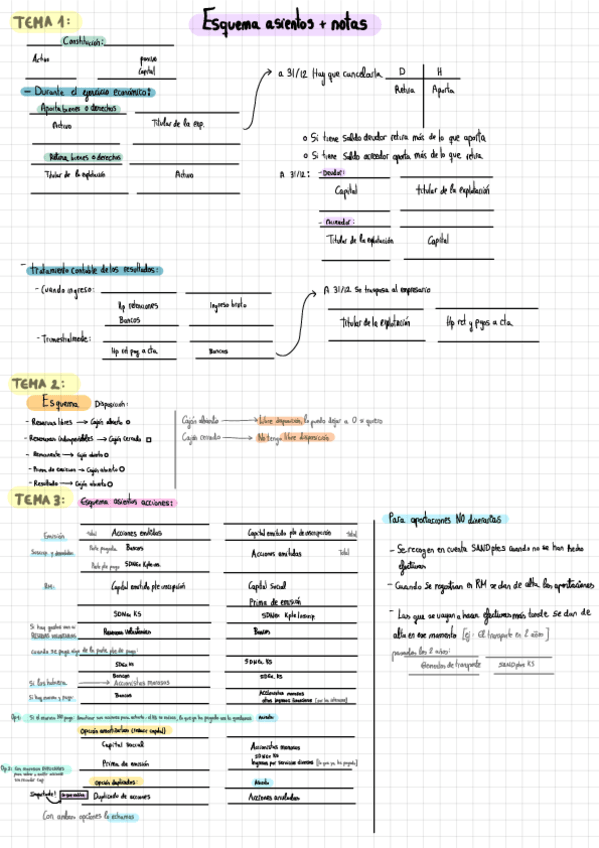 TEMA 1:
Esquema asientos + notas
Constitución:
Activo
pasivo
Capital
- Durante el ejercicio económico:
Aporta bienes o derechos
Activo
Titular de la exp.
Retira bienes o derechos
Titular de la explotación
Activo
→ a 31/12 Hay que cancelarla
D
H
Retira
Aporta
o Si tiene saldo deudor retira más de lo que aporta
o Si tiene saldo acreedor aporta más de lo que retira
A 31/12:
- Deudor:
Capital
titular de la explotación
- Acreedor:
Titular de la explotación
Capital
- Tratamiento contable de los resultados:
- Cuando ingreso:
Hp retenciones
Bancos
Ingreso bruto
- Trimestralmente:
Hp ret pag a cta
Bancos
A 31/12 se traspasa al empresario
Titular de la explotación
Hp ret y pagos a cta.
TEMA 2:
Esquema Disposición:
- Reservas libres → Cajón abierto
- Reservas indisponibles → Cajón cerrado
- Remanente → Cajón abierto
- Prima de emisión → Cajón abierto
- Resultado → Cajón abierto
Cajón abierto → Libre disposición, lo puedo dejar a 0 si quiero
Cajón cerrado → No tengo libre disposición
TEMA 3:
Esquema asientos acciones:
Emisión
total
Acciones emitidas
Capital emitido pte de inscripción
total
Suscrip. y desembolso
Parte pagada
Bancos
Parte pte pago
Acciones emitidas
Total
RM:
Capital emitido pte inscripción
Capital Social
Prima de emisión
SDNEx KS
Si hay gastos van a
Reservas voluntarias
Reservas Voluntarias
Bancos
cuando se paga algo de la parte pte de pago:
SDNEx KS
Bancos
SDEx. KS
Accionistas morosos
Si hay moroso y paga:
Bancos
Accionistas morosos
Opción amortizarlas (reducir capital)
Capital Social
Prima de emisión
Accionistas morosos
SDNEx KS
Ingresos por servicios diversos [lo que ya ha pagado]
Opción duplicados:
Duplicado de acciones
Acciones anuladas
Importante!
Con ambas opciones lo echamos
Para aportaciones NO dinerarias
- Se recogen en cuenta SANDptes cuando no se han hecho
efectivas
- Cuando se registran en RM se dan de alta las aportaciones
- Las que se vayan a hacer efectivas más tarde se dan de
alta en ese momento [ej: El transporte en 2 años]
pasados los 2 años:
Elementos de transporte
SANDptes KS